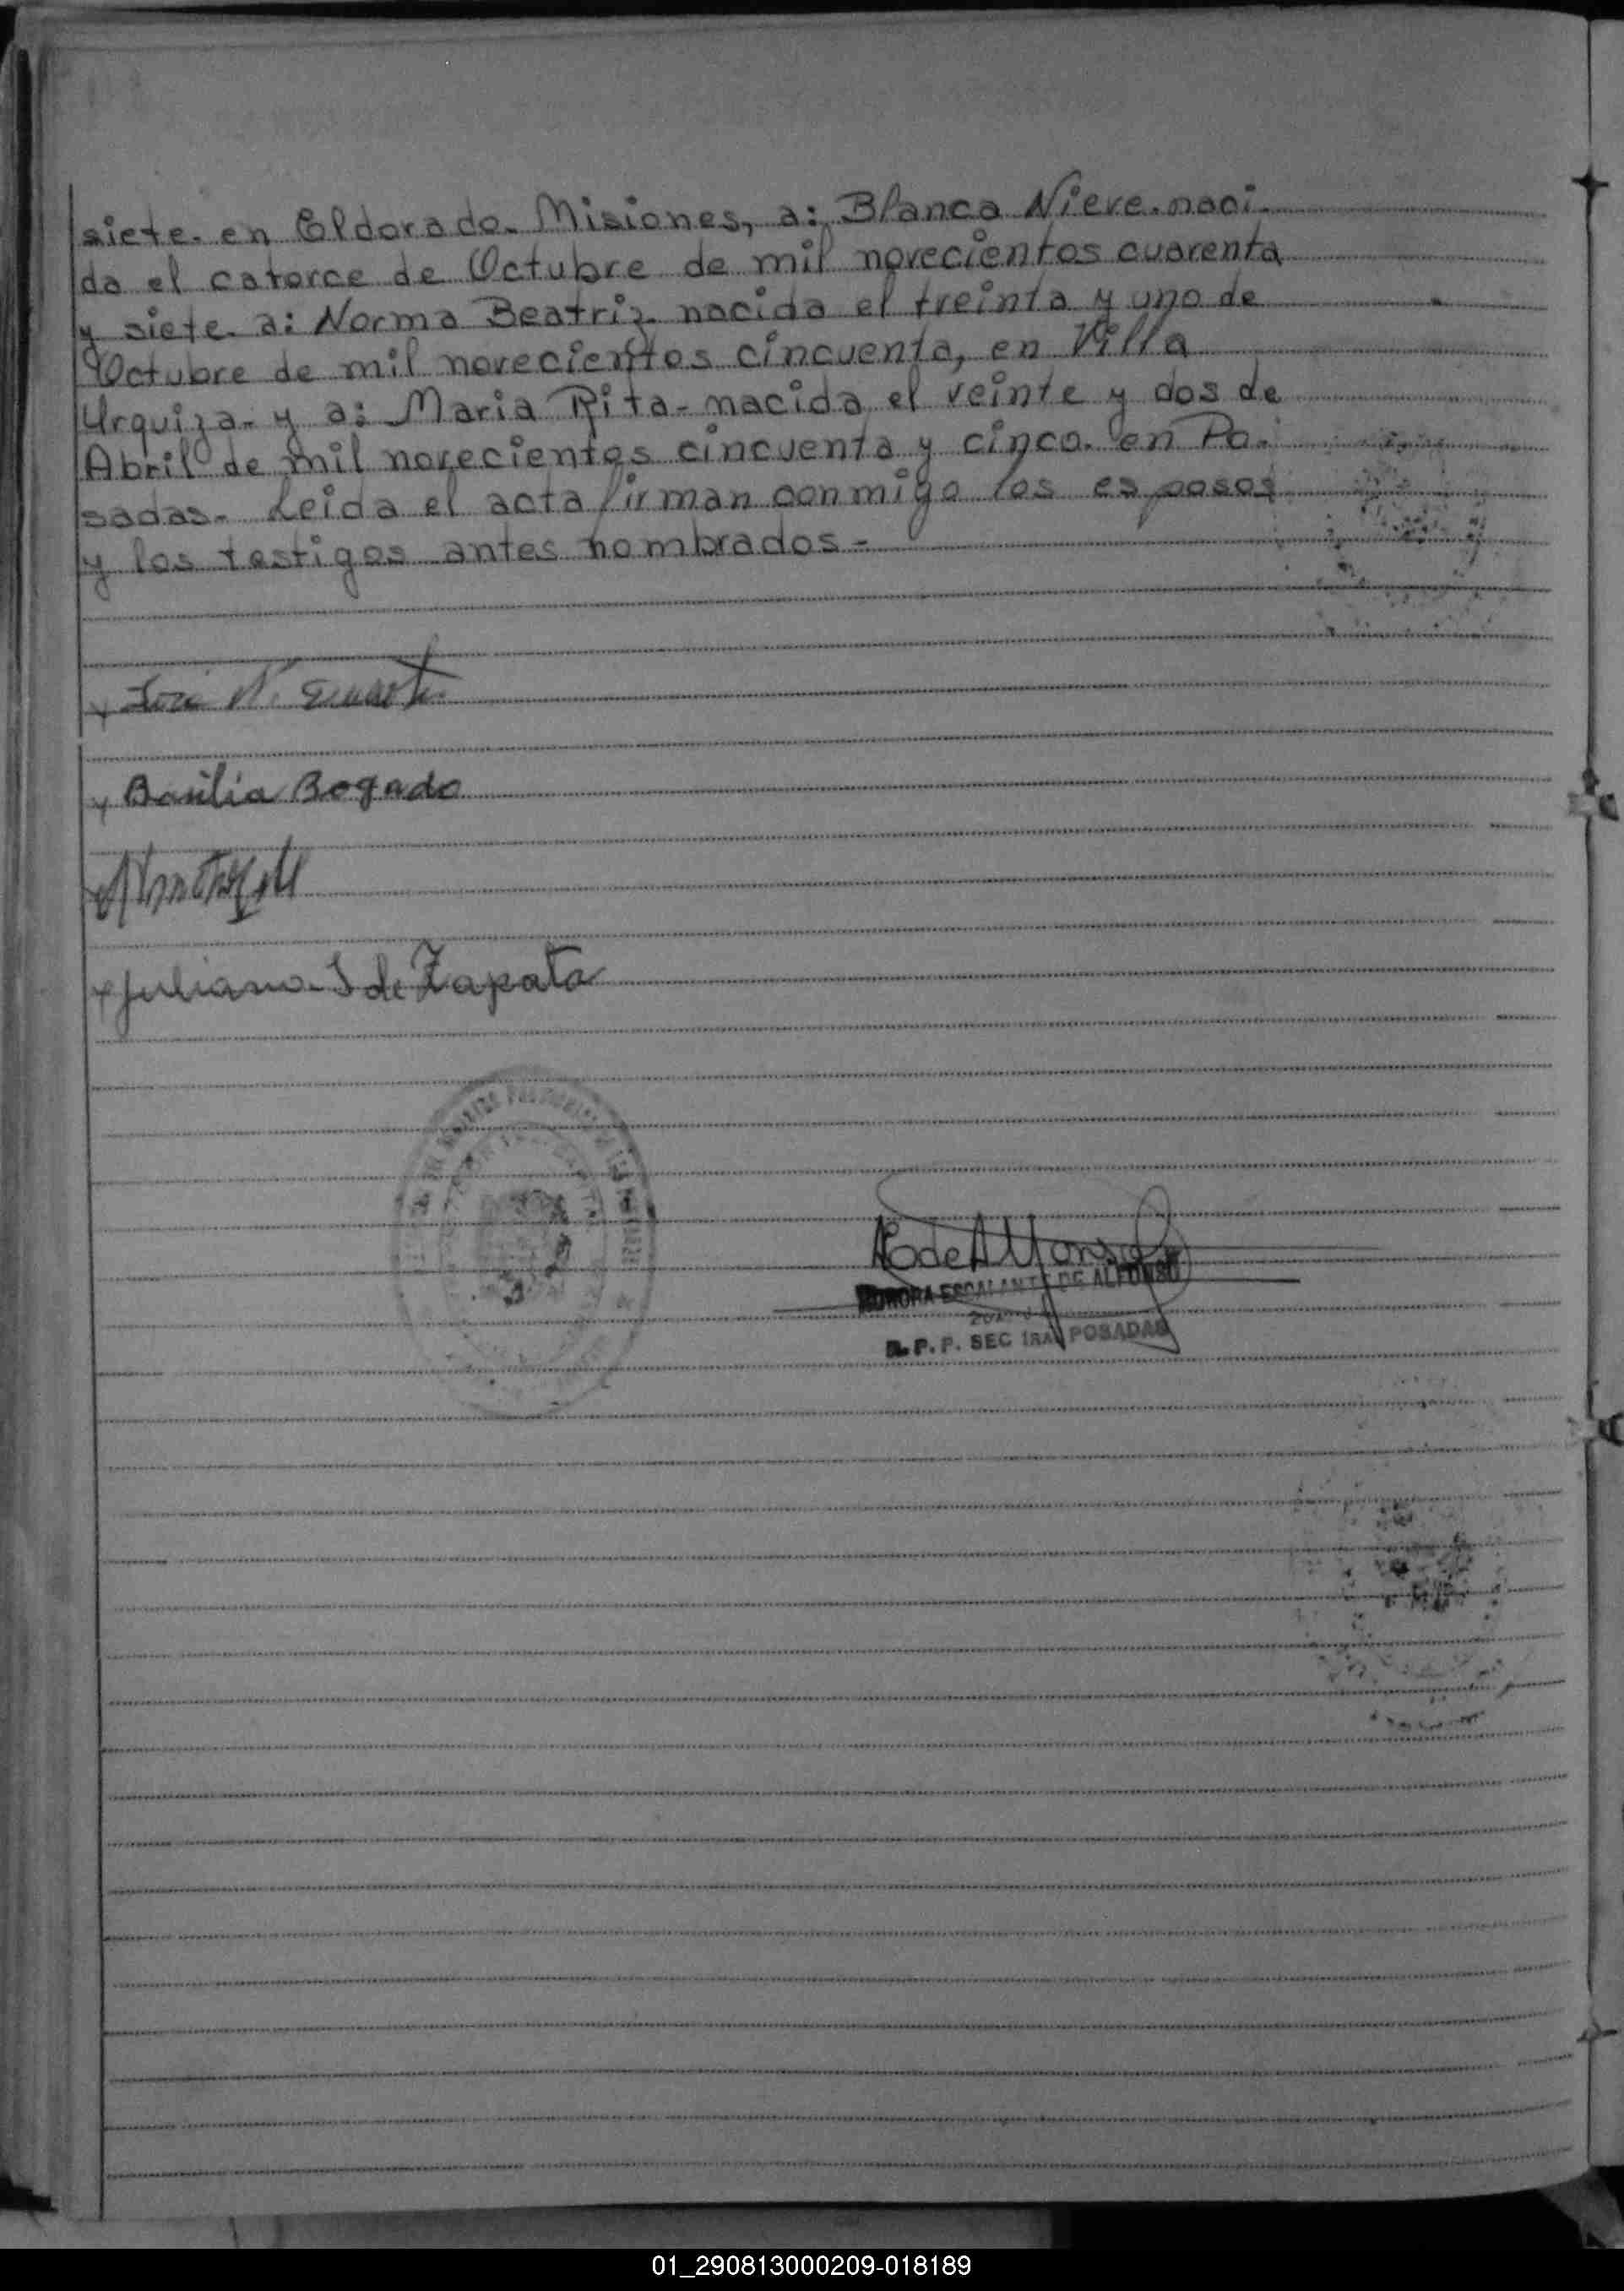 siete. en Eldorado. Misiones, a: Blanca Nieve. naci-
da el catorce de Octubre de mil novecientos cuarenta
y siete. a: Norma Beatriz. nacida el treinta y uno de
Octubre de mil novecientos cincuenta, en Villa
Urquiza. y a: Maria Rita - nacida el veinte y dos de
Abril de mil novecientos cincuenta y cinco. en Po-
sadas. Leida el acta firman conmigo los esposos
y los testigos antes nombrados -
José N.
Basilia Bogado
Juliana S de Zapata
E de Alfonso
AURORA ESCALANTE DE ALFONSO
R. P. P. SEC 1RA POSADAS
01_290813000209-018189